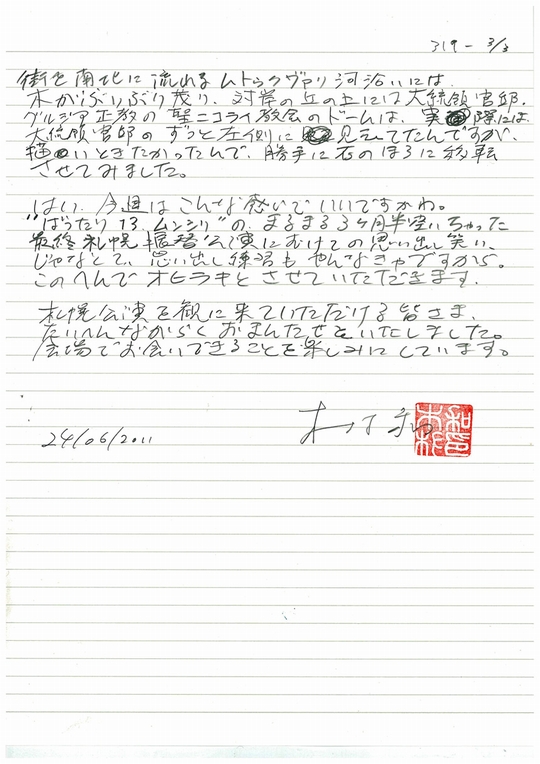 319 - 3/3
街を南北に流れるムトゥクヴァリ河沿いには
木がぶりぶり茂り、対岸の丘の上には大統領官邸。
グルジア正教の聖ニコライ教会のドームは、実際には
大統領官邸のずっと左側に見えてたんですが、
描いときたかったんで、勝手に右のほうに移転
させてみました。
はい、今週はこんな感じでいいですかね。
"ばったり13.ムンシリ"の、まるまる3ヶ月半空いちゃった
最終札幌振替公演にむけての思い出し笑い、
じゃなくて、思い出し練習もやんなきゃですから。
このへんでオヒラキとさせていただきます。
札幌公演を観に来ていただける皆さま、
たいへんながらくおまんたせをいたしました。
会場でお会いできることを楽しみにしています。
24/06/2011